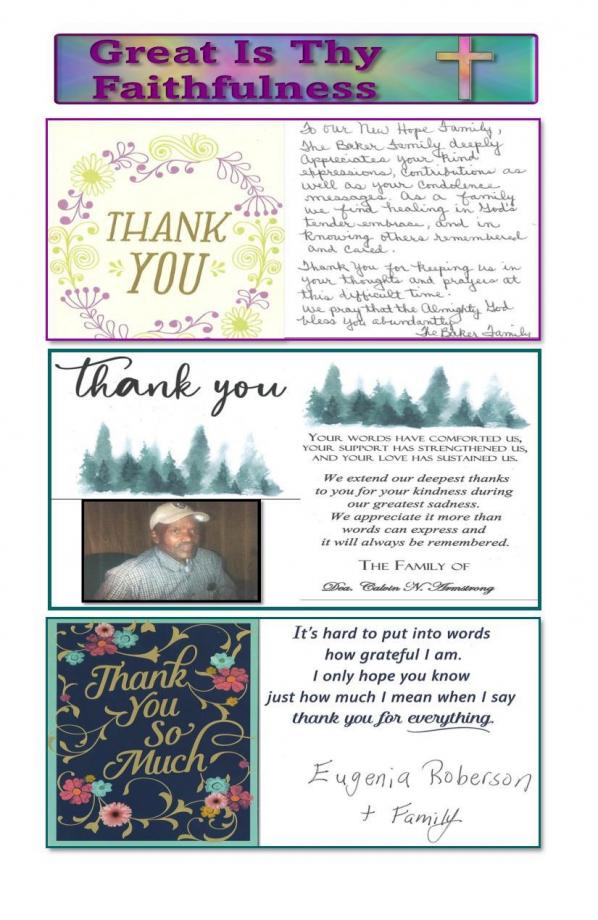 Great Is Thy
Faithfulness
THANK
YOU
To our New Hope Family,
The Baker Family deeply
Appreciates your kind
expressions, contributions as
well as your condolence
messages. As a family
we find healing in God's
tender embrase, and in
knowing others remembered
and cared.
Thank You for keeping us in
your thoughts and prayers at
this difficult time.
We pray that the Almighty God
bless you abundantly
The Baker Family
thank you
YOUR WORDS HAVE COMFORTED US,
YOUR SUPPORT HAS STRENGTHENED US,
AND YOUR LOVE HAS SUSTAINED US.
We extend our deepest thanks
to you for your kindness during
our greatest sadness.
We appreciate it more than
words can express and
it will always be remembered.
THE FAMILY OF
Dea. Calvin N. Armstrong
Thank
You
So
Much
It's hard to put into words
how grateful I am.
I only hope you know
just how much I mean when I say
thank you for everything.
Eugenia Roberson
+ Family